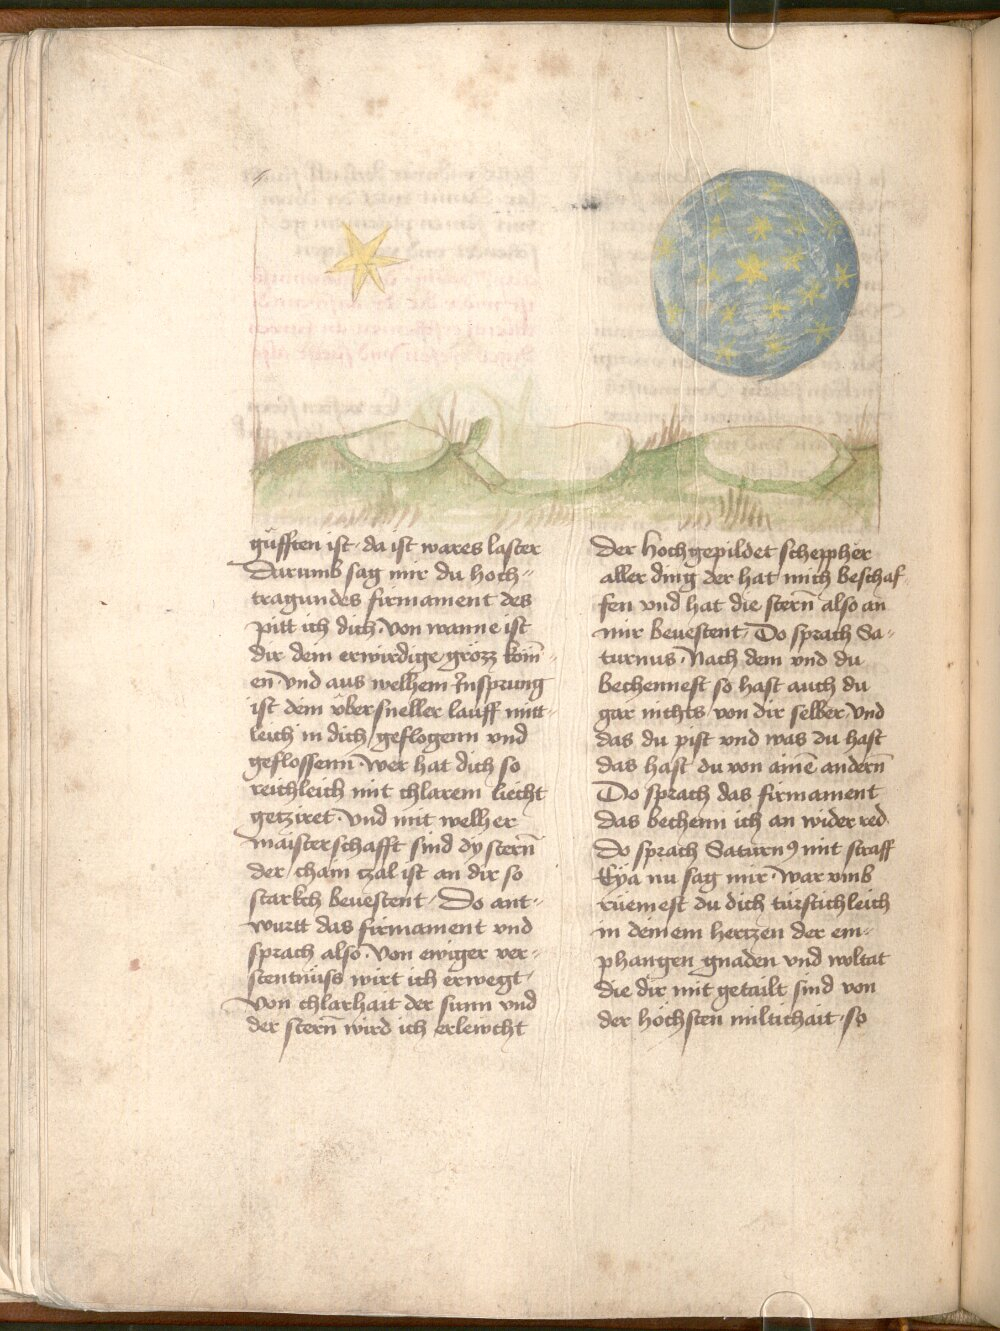 güfften ist · da ist wares laster
Darumb sag mir du hoch-
tragundes firmament des
pitt ich dich · von wanne ist
dir dem erwirdige grözz köm̄-
en · vnd aus welhem vrsprung
ist dein vbersneller lauff mitt-
leich in dich geflogenn vnd
geflossenn · wer hat dich so
reichleich mit chlarem liecht
getziret · vnd mit welher
maisterschafft sind dy stern̄
der chain tzal ist an dir so
starkch beuestent · Do ant-
wurtt das firmament vnd
sprach also · Von ewiger ver-
stentnüss wirt ich erwegt
von chlarhait der sunn vnd
der stern̄ wird ich erlewcht
Der hochgepildet scheppher
aller ding der hat mich beschaf-
fen vnd hat die stern̄ also an
mir beuestent · Do sprach Sa-
turnus · Nach dem vnd du
bechennest so hast auch du
gar nichts von dir selber · vnd
das du pist vnd was du hast
das hast du von ainē andern̄
Do sprach das firmament
das bechenn ich an wider red ·
Do sprach Saturnꝰ mit straff
Eya nu sag mir · war vmb
rüemest du dich türstichleich
in deinem hertzen der em-
phangen gnaden vnd woltat
die dir mit getailt sind von
der höchsten miltichait · so